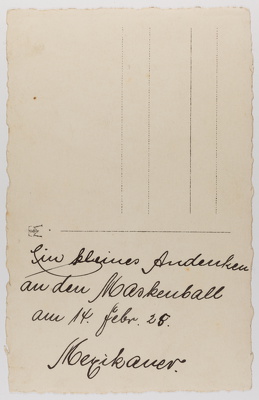 Ein kleines Andenken
an den Maskenball
am 14. Febr. 28.
Mexikaner.